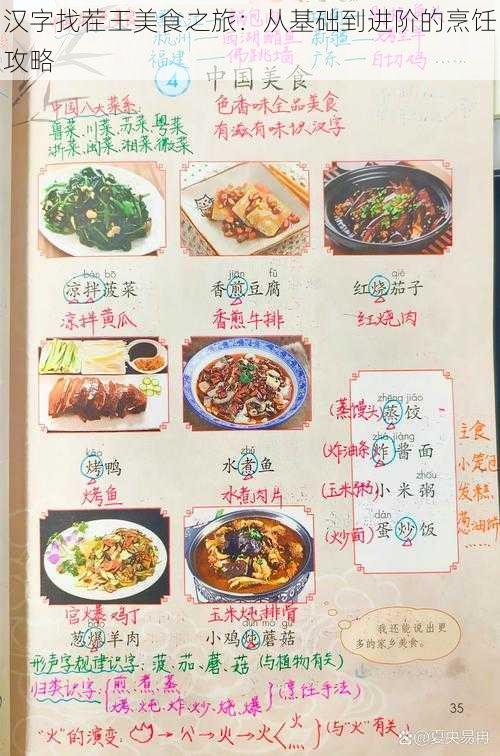 汉字找茬王美食之旅：从基础到进阶的烹饪
攻略
福建－佛跳墙 广东－白切鸡……
4 中国美食
中国八大菜系：
鲁菜、川菜、苏菜、粤菜
浙菜、闽菜、湘菜、徽菜
色香味全品美食
有滋有味识汉字
bàn bō
凉拌菠菜
凉拌黄瓜
jiān fǔ
香煎豆腐
香煎牛排
qié
红烧茄子
红烧肉
kǎo
烤鸭
烤鱼
zhǔ
水煮鱼
水煮肉片
zhēng jiǎo
(蒸馒头)蒸饺
zhá jiàng
(炸油条)炸酱面
zhōu
(玉米粥)小米粥
dàn
(炒面)蛋炒饭
主食
小笼包
发糕
葱油饼
……
宫爆鸡丁
葱爆羊肉
玉米炖排骨
dùn mó gu
小鸡炖蘑菇
我还能说出更
多的家乡美食。
形声字规律识字：菠、茄、蘑、菇（与植物有关）
归类识字：{煎、煮、蒸
烤、炖、炸、炒、烧、爆}（烹饪手法）
35
“火”的演变：→火→火<火 灬（与“火”有关）